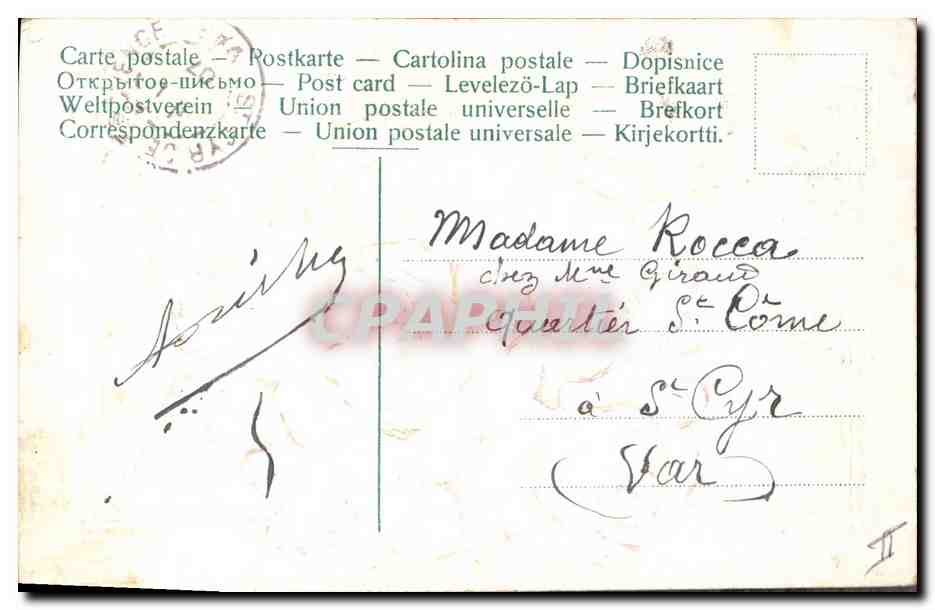 Carte postale – Postkarte – Cartolina postale – Dopisnice
Открытое-письмо – Post card – Levelezö-Lap – Briefkaart
Weltpostverein – Union postale universelle – Brefkort
Correspondenzkarte – Union postale universale – Kirjekortti.
Madame Rocca
chez Mme Giraud
CPAPHIL
quartier St. Côme
à St Cyr
(Var)
II